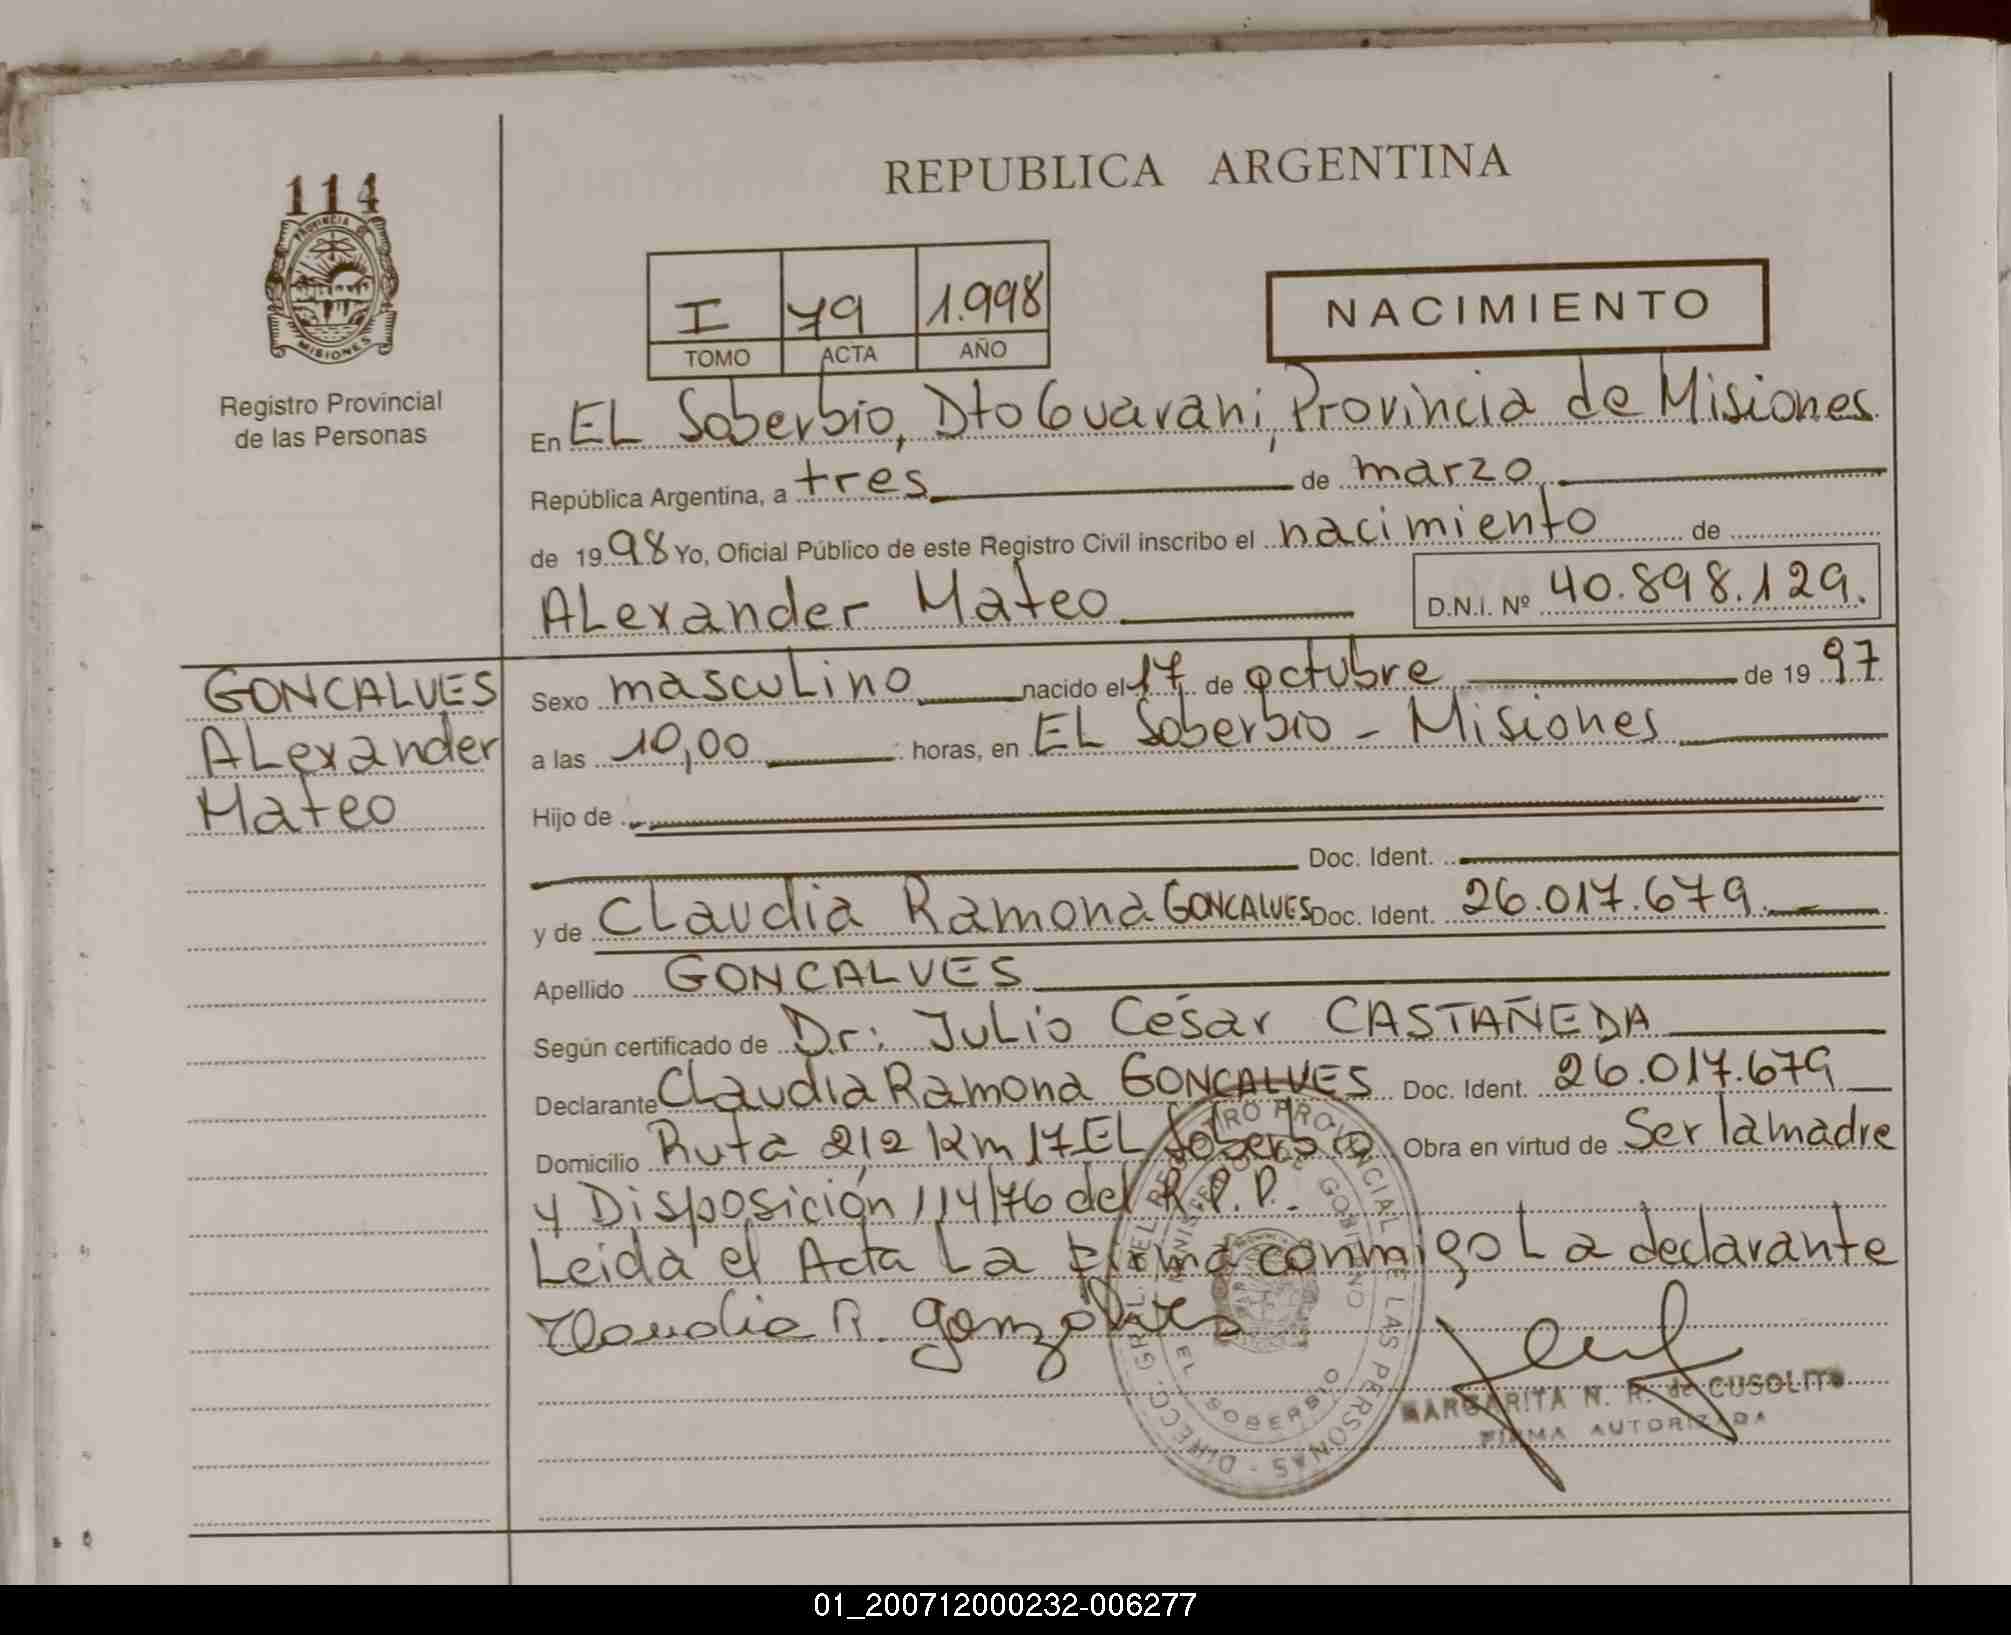 114
PROVINCIA DE
MISIONES
Registro Provincial
de las Personas
REPUBLICA ARGENTINA
I 79 1.998
TOMO ACTA AÑO
NACIMIENTO
En EL Soberbio, Dto Guarani, Provincia de Misiones
República Argentina, a tres de marzo
de 1998 Yo, Oficial Público de este Registro Civil inscribo el nacimiento de
ALexander Mateo D.N.I. Nº 40.898.129.
GONCALVES
ALexander
Mateo
Sexo mascuLino nacido el 17 de octubre de 1997
a las 10,00 horas, en EL Soberbio - Misiones
Hijo de
Doc. Ident.
y de CLaudia Ramona GONCALVES Doc. Ident. 26.017.679
Apellido GONCALVES
Según certificado de Dr: JuLio César CASTAÑEDA
Declarante CLaudia Ramona GONCALVES Doc. Ident. 26.017.679
Domicilio Ruta 212 Km 17 EL Soberbio Obra en virtud de Ser la madre
y Disposición 114/76 del R.P.P.
Leida el Acta La firma conmigo La declarante
Claudia R. gonzalves
DIRECC. GRAL. DEL REGISTRO PROVINCIAL DE LAS PERSONAS -
MINISTERIO DE GOBIERNO
EL SOBERBIO
MARGARITA N. R. de CUSOLITO
FIRMA AUTORIZADA
01_200712000232-006277